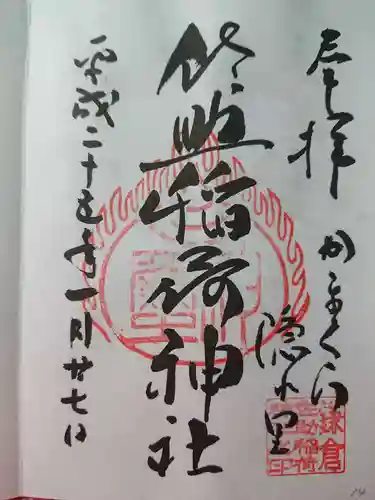 奉拝 かまくら
隠れ里
佐助稲荷神社
平成二十五年一月廿七日
鎌倉
佐助稲荷
14